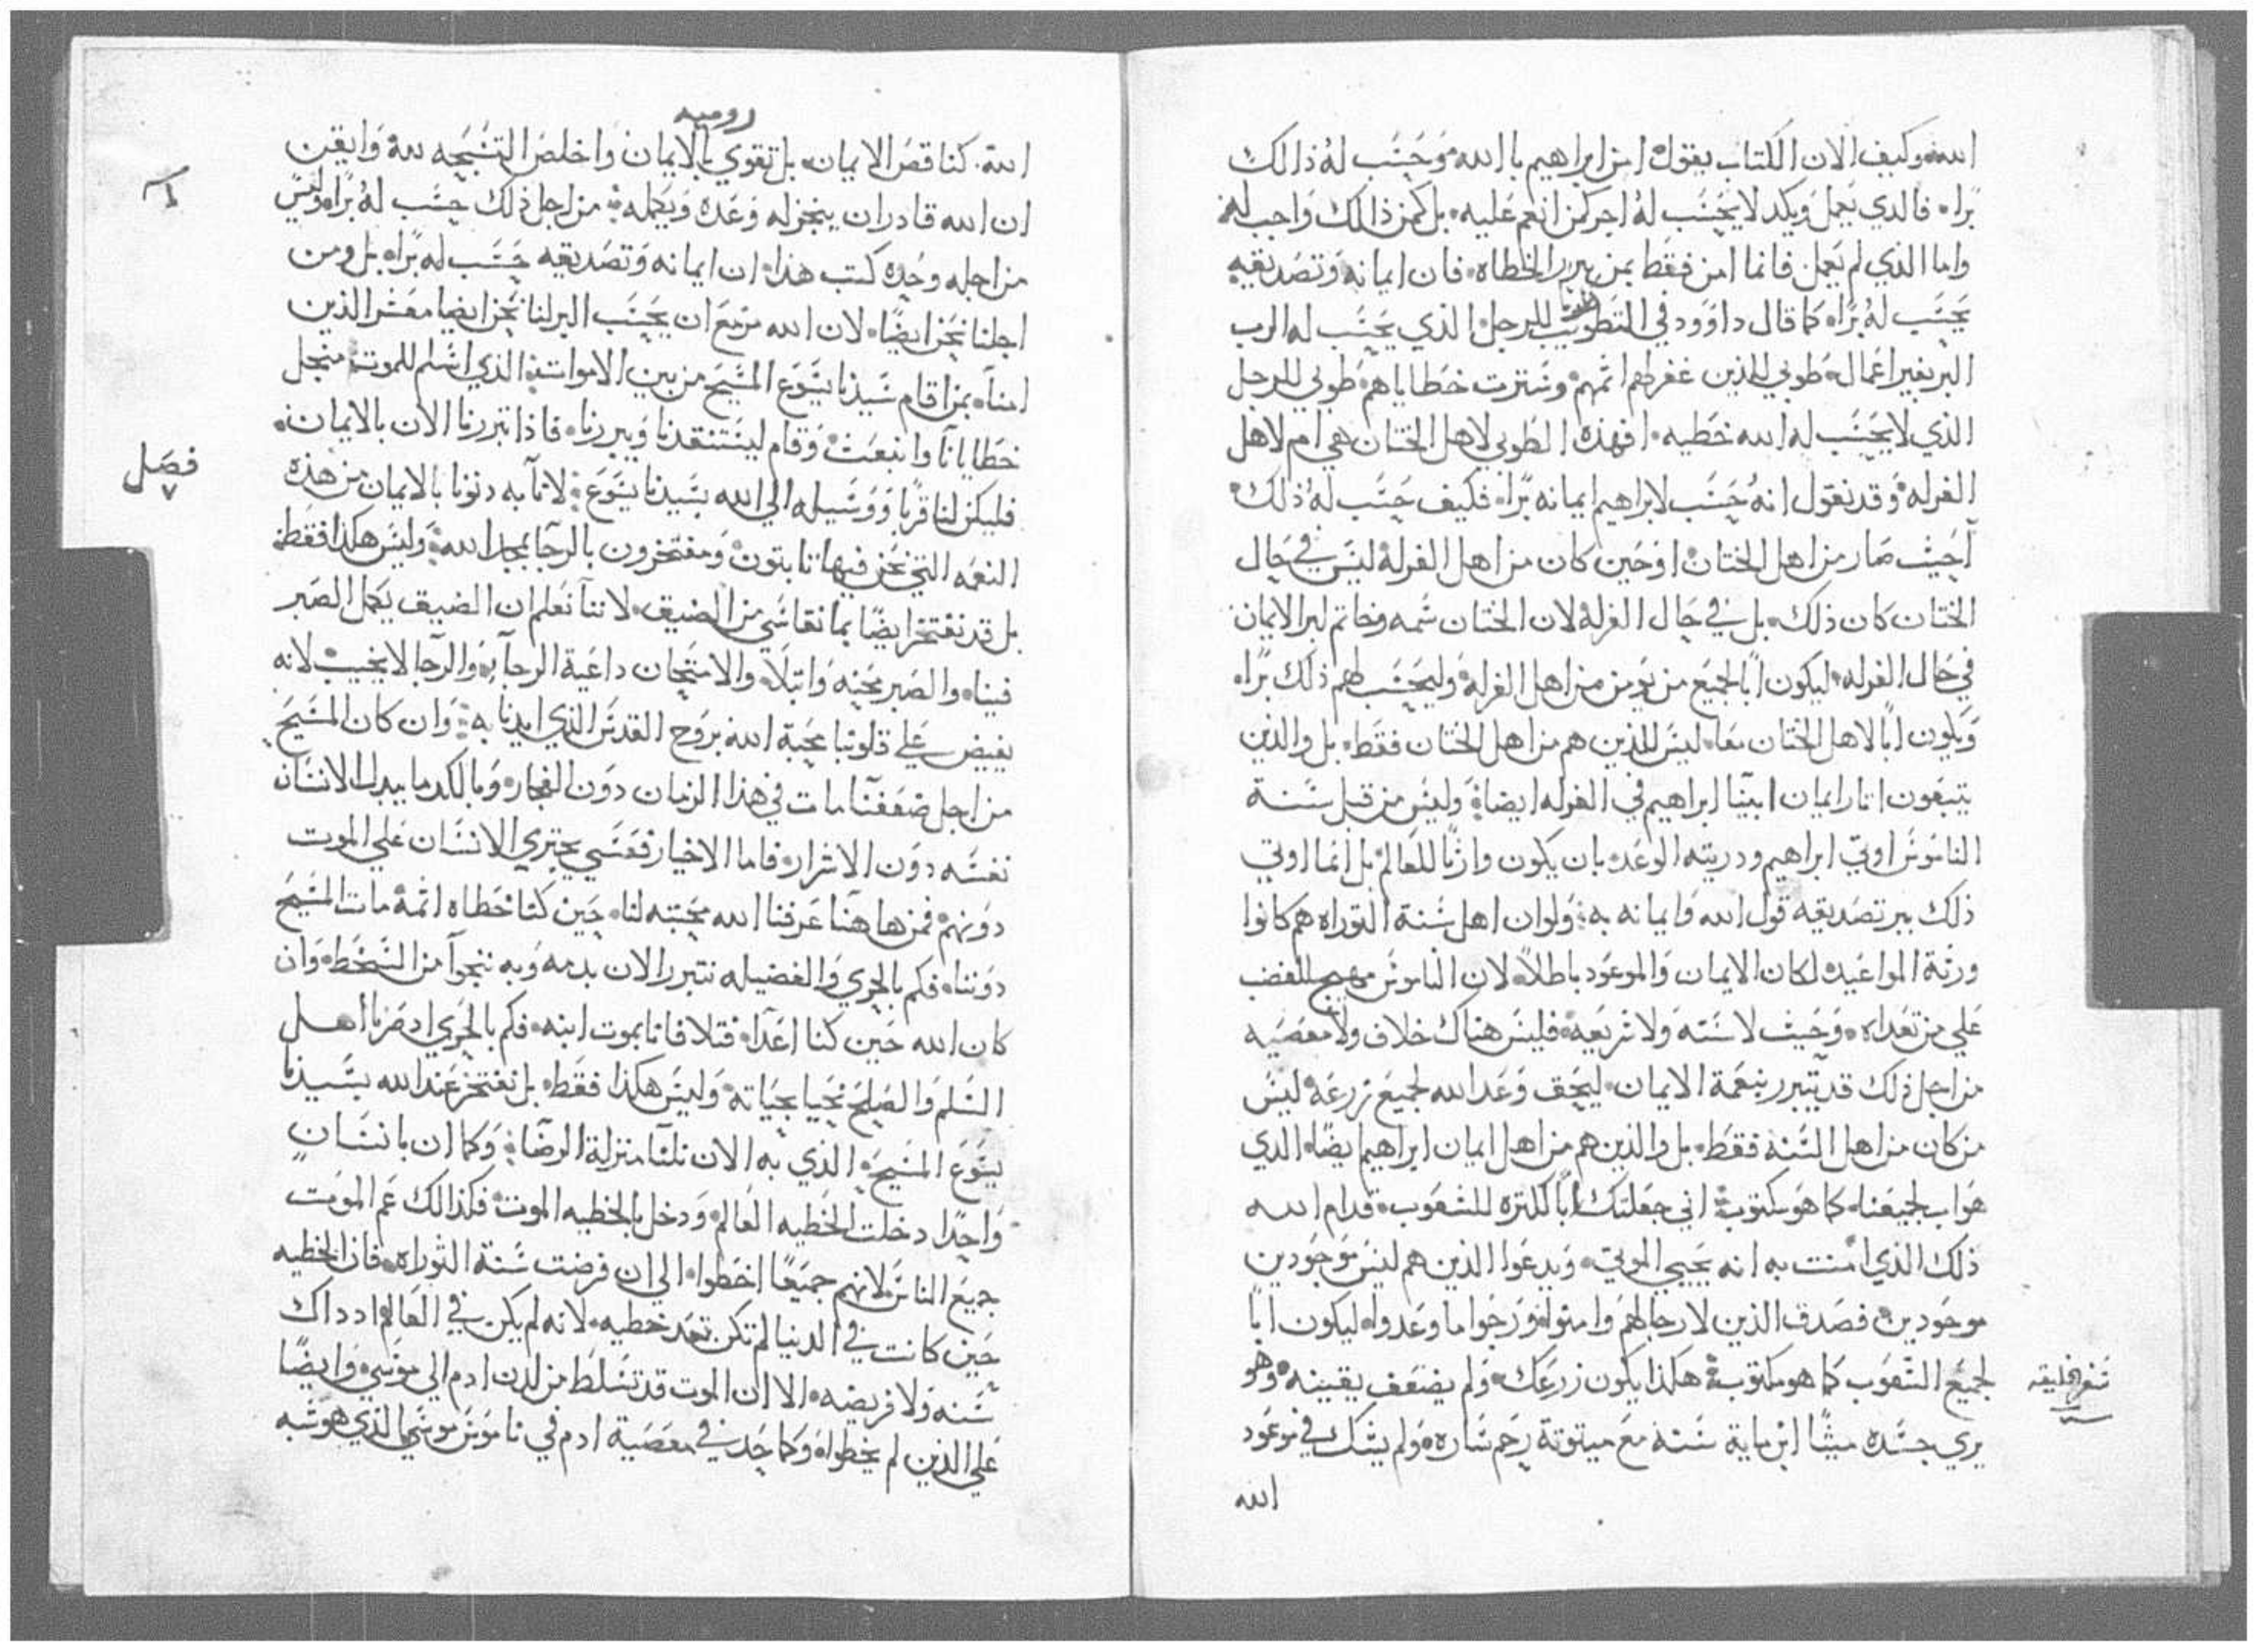 الله وكيف الان الكتاب يقول امن ابراهيم بالله وحسب له ذالك
برا. فالدي يعمل ويكد لا يحسب له اجر كمن انعم عليه. بل كمن ذالك واجب له
واما الذي لم يعمل فانما امن فقط بمن يبرر الخطاه. فان ايمانه وتصديقه
يحسب له برا. كما قال داوود في التطويب للرجل الذي يحسب له الرب
البر بغير اعمال. طوبي للذين غفر لهم اثمهم وسترت خطاياهم. طوبي للرجل
الذي لا يحسب له الله خطيه. افهذه الطوبي لاهل الختان هي ام لاهل
الغرله وقد نقول انه حسب لابراهيم ايمانه برا. فكيف حسب له ذلك
احيث صار من اهل الختان او حين كان من اهل الغرله ليس في حال
الختان كان ذلك. بل في حال الغرله لان الختان سمه وخاتم لبر الايمان
في حال الغرله ليكون ابا لجميع من يومن من اهل الغرله وليحسب لهم ذلك برا.
ويكون ابا لاهل الختان معا. ليس للذين هم من اهل الختان فقط. بل والذين
يتبعون اثار ايمان ابينا ابراهيم في الغرله ايضا وليس من قبل سنة
الناموس اوتي ابراهيم ودريته الوعد بان يكون وارثا للعالم بل انما اوتي
ذلك ببر تصديقه قول الله وايمانه به ولو ان اهل سنة التوراه هم كانوا
ورثة المواعيد لكان الايمان والموعود باطلا. لان الناموس مهيج للغضب
علي من تعداه. وحيث لا سنه ولا شريعه فليس هناك خلاف ولا معصيه
من اجل ذلك قد يتبرر بنعمة الايمان. ليحق وعد الله لجميع زرعه ليس
من كان من اهل السنه فقط. بل والذين هم من اهل ايمان ابراهيم ايضا. الدي
هو اب لجميعنا. كما هو مكتوب اني جعلتك ابا لكثره للشعوب. قدام الله
ذلك الذي امنت به انه يحيي الموتي. ويدعوا الذين هم ليس موجودين
موجودين فصدق الذين لا رجا لهم وامنوا ورجوا ما وعدوا. ليكون ابا
لجميع الشعوب كما هو مكتوب هكذا يكون زرعك. ولم يضعف يقينه وهو
سفر الخليقه
يري جسده ميتا ابن ماية سنه مع ميتوتة رحم ساره ولم يشك في موعود
الله
روميه
الله. كناقص الايمان. بل تقوي بالايمان واخلص التسبحه لله وايقن
ان الله قادر ان ينجز له وعده ويكمله من اجل ذلك حسب له برا. وليس
من اجله وحده كتب هذا. ان ايمانه وتصديقه حسب له برا. بل ومن
اجلنا نحن ايضا. لان الله مزمع ان يحسب البر لنا نحن ايضا معشر الذين
امنا. بمن اقام سيدنا يسوع المسيح من بين الاموات الذي اسلم للموت منجل
خطايانا وانبعث وقام لينتنقدنا ويبررنا. فاذا تبررنا الان بالايمان
فصل
٧
فليكن لنا قربا ووسيله الي الله بسيدنا يسوع لانا به دنونا بالايمان من هذه
النعمه التي نحن فيها تابتون ومفتخرون بالرجا بمجد الله وليس هكذا فقط
بل قد نفتخر ايضا بما نقاسي من الضيق. لاننا نعلم ان الضيق يكمل الصبر
فينا. والصبر محنه وابتلا. والامتحان داعية الرجا. والرجا لا يخيب لانه
يفيض علي قلوبنا محبة الله بروح القدس الذي ايدنا به وان كان المسيح
من اجل ضعفنا مات في هذا الزمان دون الفجار. وبالكد ما يبدل الانسان
نفسه دون الاشرار. فاما الاخيار فعسي يجتري الانسان علي الموت
دونهم فمن هاهنا عرفنا الله محبته لنا. حين كنا خطاه اثمة مات المسيح
دوننا. فكم بالحري والفضيله نتبرر الان بدمه وبه ننجوا من السخط. وان
كان الله حين كنا اعدا. فتلافانا بموت ابنه. فكم بالحري اد صرنا اهل
السلم والصلح نحيا بحياته. وليس هكذا فقط. بل نفتخر عند الله بسيدنا
يسوع المسيح الذي به الان نلنا منزلة الرضا وكما ان بانسان
واحدا دخلت الخطيه العالم ودخل بالخطيه الموت فكذالك عم الموت
جميع الناس. لانهم جميعا اخطوا. الي ان فرضت سنة التوراه. فان الخطيه
حين كانت في الدنيا لم تكن تعد خطيه. لانه لم يكن في العالم اد داك
سنه ولا فريضه. الا ان الموت قد تسلط من لدن ادم الي موسي وايضا
علي الذين لم يخطوا. وكما جد في معصية ادم في ناموس موسي الذي هو شبه